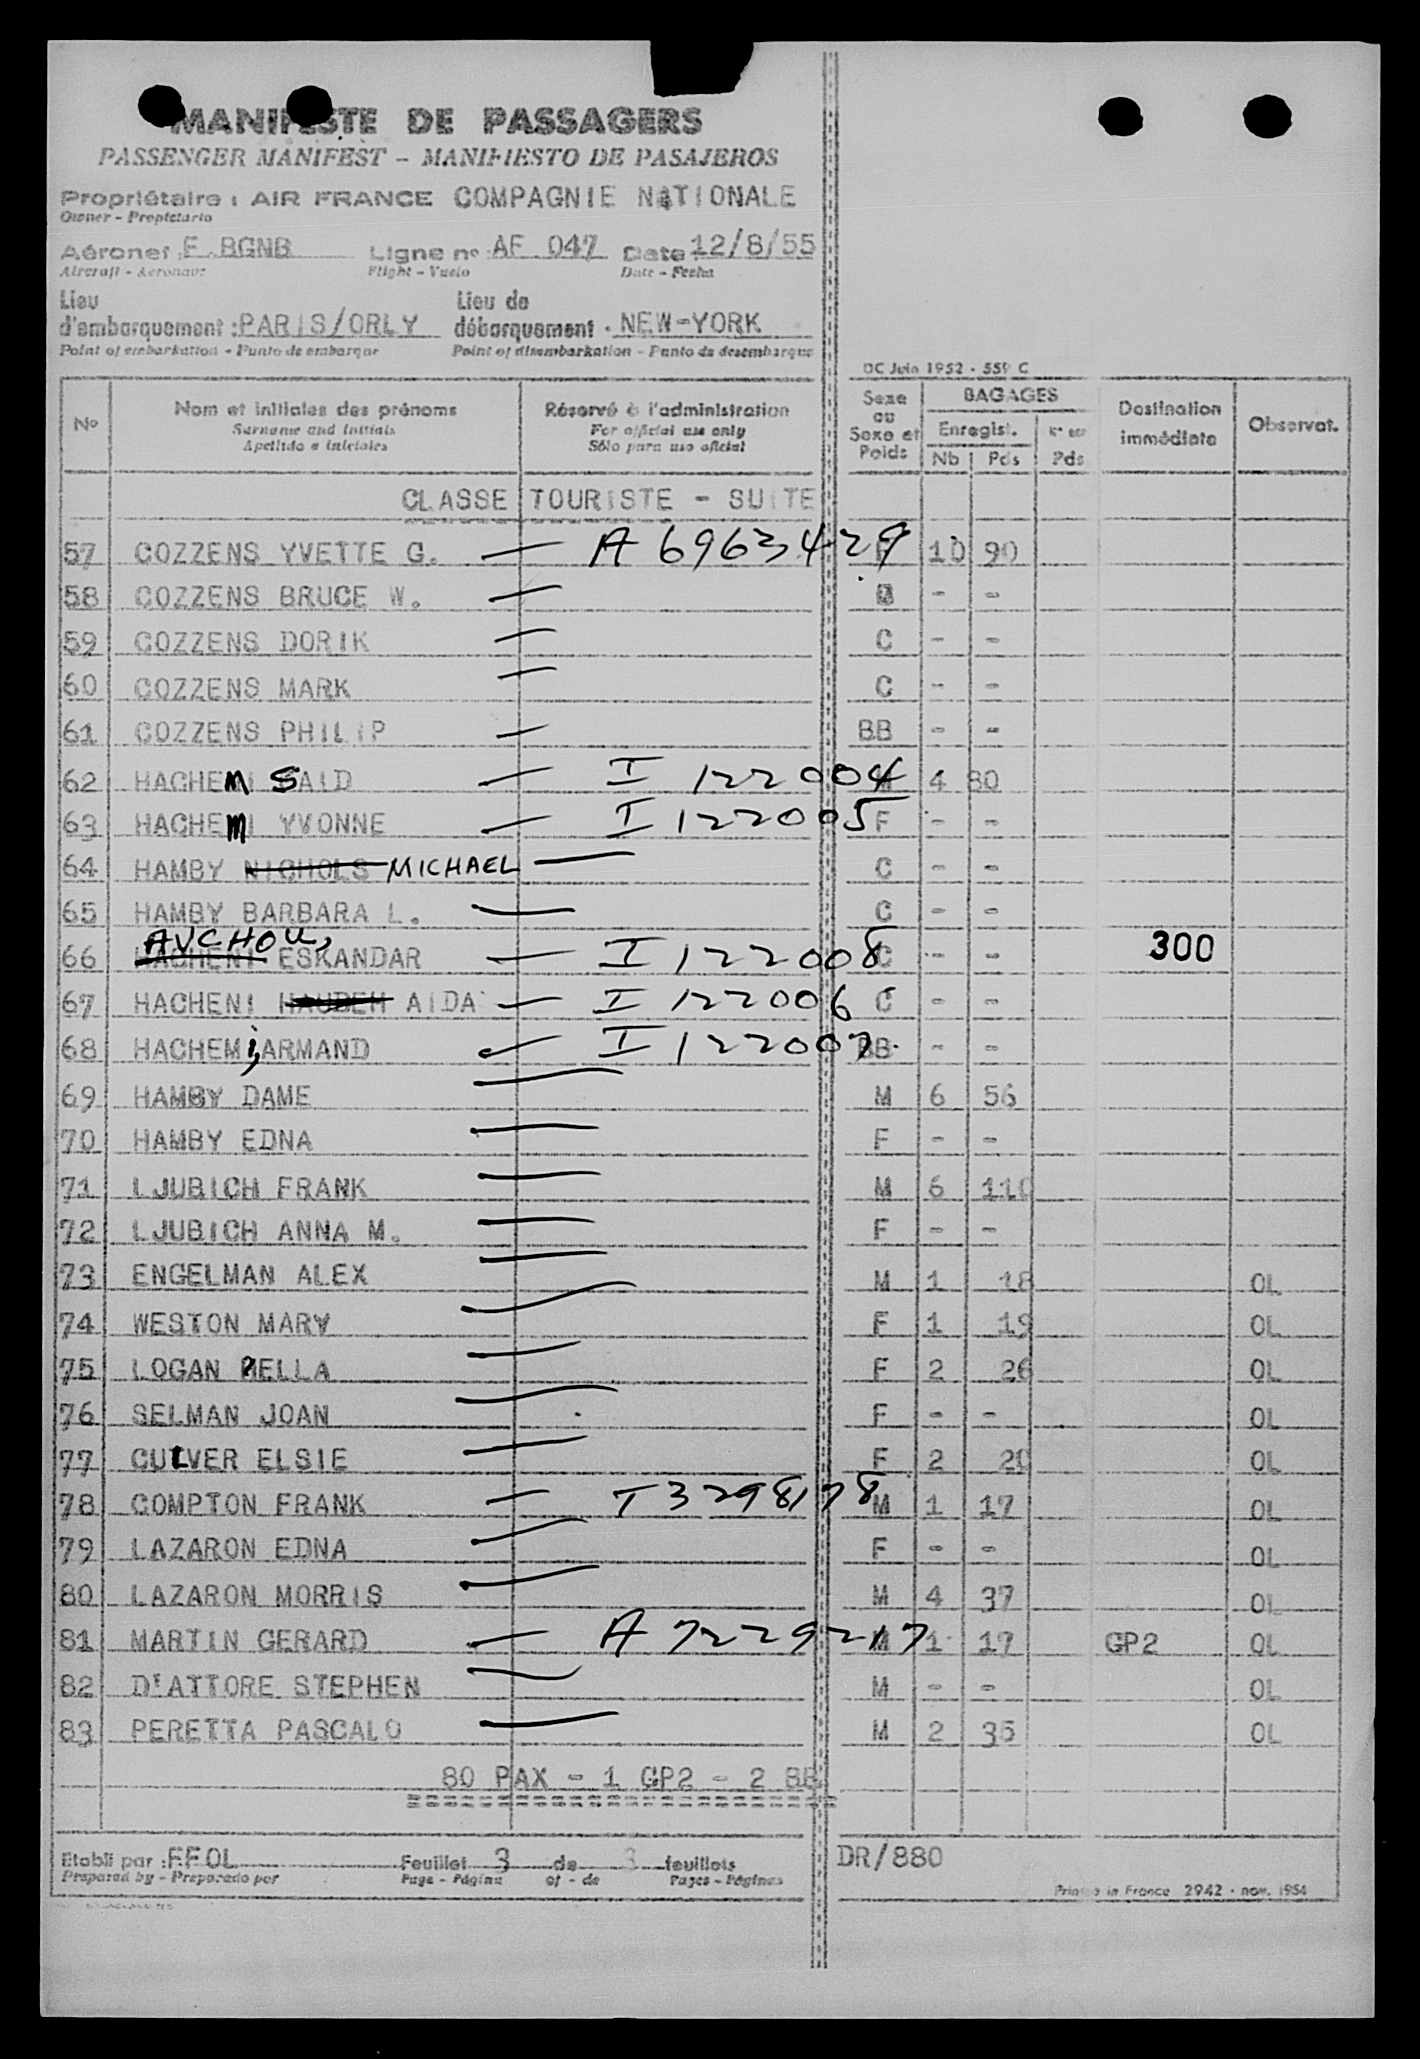 MANIFESTE DE PASSAGERS
PASSENGER MANIFEST - MANIFIESTO DE PASAJEROS
Propriétaire : AIR FRANCE COMPAGNIE NATIONALE
Owner - Propietario
Aéronef : F.BGNB Ligne no AF 047 Date : 12/8/55
Aircraft - Aeronave Flight - Vuelo Date - Fecha
Lieu d'embarquement : PARIS/ORLY Lieu de débarquement . NEW-YORK
Point of embarkation - Punto de embarque Point of disembarkation - Punto de desembarque
DC Juin 1952 - 559 C
No Nom et initiales des prénoms Réservé à l'administration Sexe ou Sexe et Poids BAGAGES Destination immédiate Observat.
Surname and initials For official use only Enregist. Nb Pds Pds
Apellido e iniciales Sólo para uso oficial
CLASSE TOURISTE - SUITE
57 COZZENS YVETTE G. — A 6963429 F 10 90
58 COZZENS BRUCE W. — - -
59 COZZENS DORIK — C - -
60 COZZENS MARK — C - -
61 COZZENS PHILIP — BB - -
62 HACHEMI SAID — I 122004 M 4 80
63 HACHEMI YVONNE — I 122005 F - -
64 HAMBY NICHOLS MICHAEL — C - -
65 HAMBY BARBARA L. — C - -
66 HACHENI AVCHOU, ESKANDAR — I 122008 C - - 300
67 HACHENI HAUDEH AIDA — I 122006 C - -
68 HACHEMi, ARMAND — I 122007 BB - -
69 HAMBY DAME — M 6 56
70 HAMBY EDNA — F - -
71 LJUBICH FRANK — M 6 110
72 LJUBICH ANNA M. — F - -
73 ENGELMAN ALEX — M 1 18 OL
74 WESTON MARY — F 1 19 OL
75 LOGAN ELLA — F 2 26 OL
76 SELMAN JOAN — F - - OL
77 CULVER ELSIE — F 2 20 OL
78 COMPTON FRANK — T 3298178 M 1 17 OL
79 LAZARON EDNA — F - - OL
80 LAZARON MORRIS — M 4 37 OL
81 MARTIN GERARD — A 7229217 M 1 17 GP2 OL
82 D'ATTORE STEPHEN — M - - OL
83 PERETTA PASCALO — M 2 35 OL
80 PAX - 1 GP2 - 2 BB
Etabli par : FFOL Feuillet 3 de 3 feuillets DR/880
Prepared by - Preparado por Page - Página of - de Pages - Páginas
Printed in France 2942 - nov. 1954